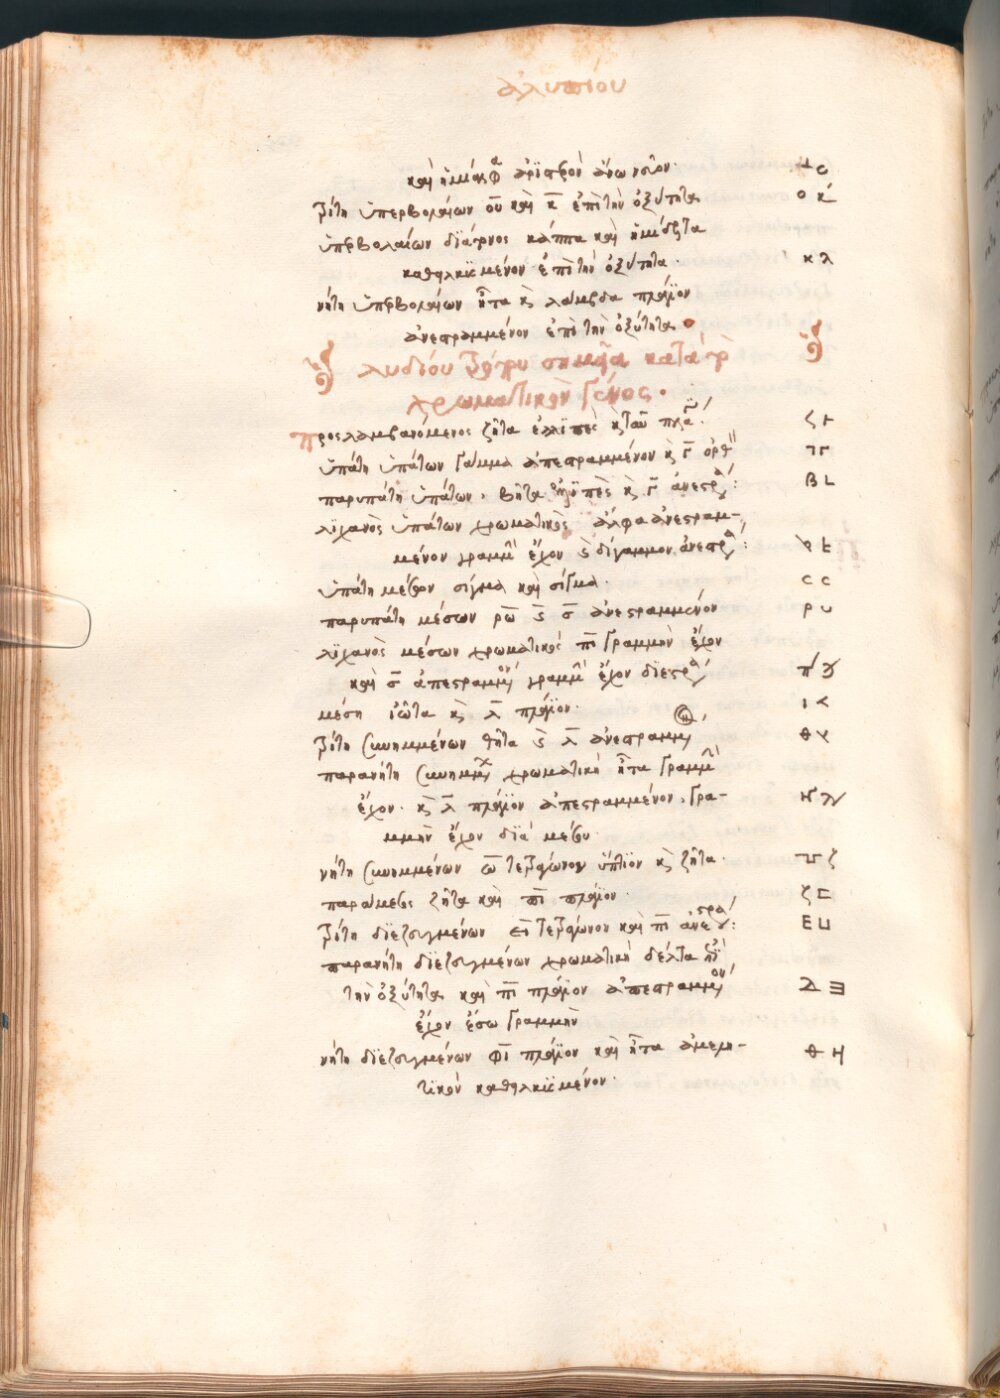 ἀλυπίου
καὶ ἡμίαλφα ἀριστερὸν ἄνω νεῦον· 
τρίτη ὑπερβολαίων οῦ καὶ κ̅ ἐπὶ τὴν ὀξύτητα Ο Κ
ὑπερβολαίων διάτονος κάππα καὶ ἡμίδελτα
καθειλκυσμένον ἐπὶ τὴν ὀξύτητα· Κ
νήτη ὑπερβολαίων ἦτα κ̀ λάμβδα πλάγιον
ἀνεστραμμένον ἐπὶ τὴν ὀξύτητα
λυδίου τρόπου σημεῖα κατὰ τὸ
χρωματικὸν γένος·
Προσλαμβανόμενος ζῆτα ἐλιπὲς κ̀ ταῦ πλά: Ϲ Ͱ
ὑπάτη ὑπάτων γάμμα ἀπεστραμμένον κ̀ γ̅ ὀρθ Γ
παρυπάτη ὑπάτων· βῆτα ἐλιπὲς κ̀ γ̅ ἀνεστρ: Β L
λιχανὸς ὑπάτων χρωματικὸς ἄλφα ἀνεστραμ-
μένον γραμμὴ ἔχον κ̀ δίγαμμον ἀνεστρ:
ὑπάτη μέσων σίγμα καὶ σίγμα· C C
παρυπάτη μέσων ρ̅ω̅ κ̀ σ̅ ἀνεστραμμένον Ρ υ
λιχανὸς μέσων χρωματικός π̅ῖ γραμμὴν ἔχον
καὶ σ̅ ἀπεστραμμένον γραμμὴ ἔχον διεστρ
μέση ἰῶτα κ̀ λ̅ πλάγιον· Ι <
τρίτη συνημμένων θῆτα κ̀ λ̅ ἀνεστραμμ
παρανήτη συνημμ χρωματικὴ ἦτα γραμμὴ
ἔχον· κ̀ λ̅ πλάγιον ἀπεστραμμένον, γρα-
μμὴν ἔχον διὰ μέσου·
νήτη συνημμένων ω̅ τετράγωνον ὕπτιον κ̀ ζῆτα· Ζ
παραμέσος ζῆτα καὶ π̅ῖ πλάγιον· Ζ ⊏
τρίτη διεζευγμένων εῖ τετράγωνον καὶ π̅ῖ ἀνεστρα: Ε ⊔
παρανήτη διεζευγμένων χρωματικὴ δέλτα
τὴν ὀξύτητα καὶ π̅ῖ πλάγιον ἀπεστραμμον
ἔχον ἔσω γραμμὴν
νήτη διεζευγμένων φῖ πλάγιον καὶ ἦτα ἀμελη-
τικὸν καθειλκυσμένον·